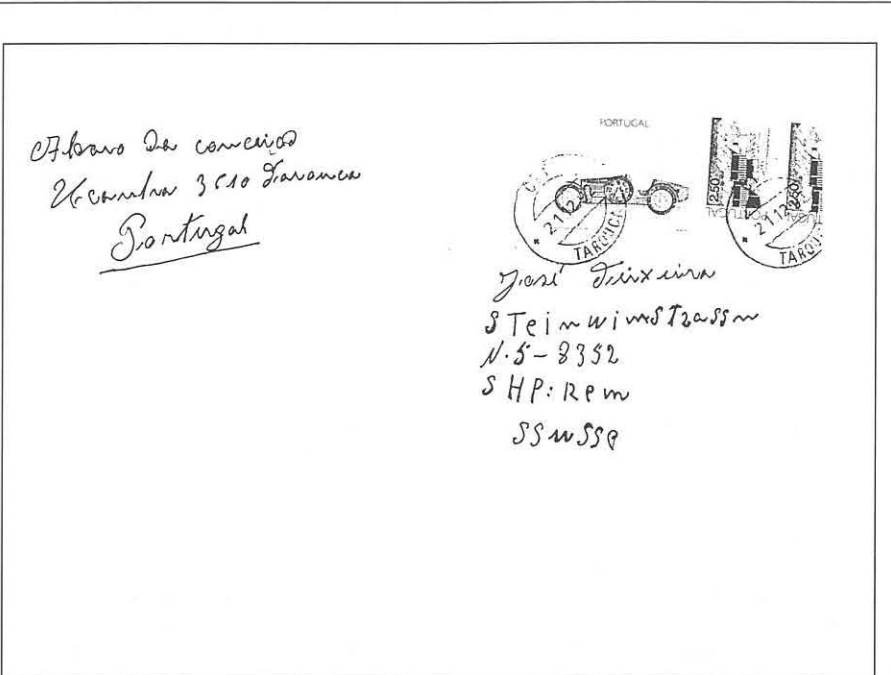 Alvaro Da conceição
Ucanha 3610 Tarouca
Portugal
PORTUGAL
250
PORTUGAL
250
PORTUGAL
21 12
TAROUCA
21 12
TAROU
José Teixeira
STeinwimSTrassn
N.5-8352
SHP:Rem
SSuSSe